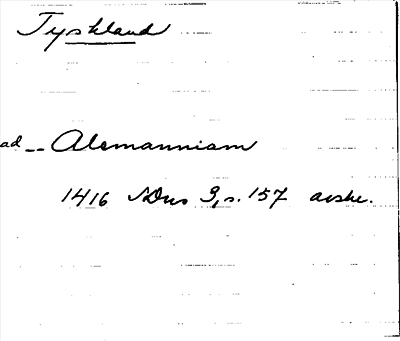 Tyskland
ad -- Alemanniam
1416 SDns 3, s. 157 avskr.